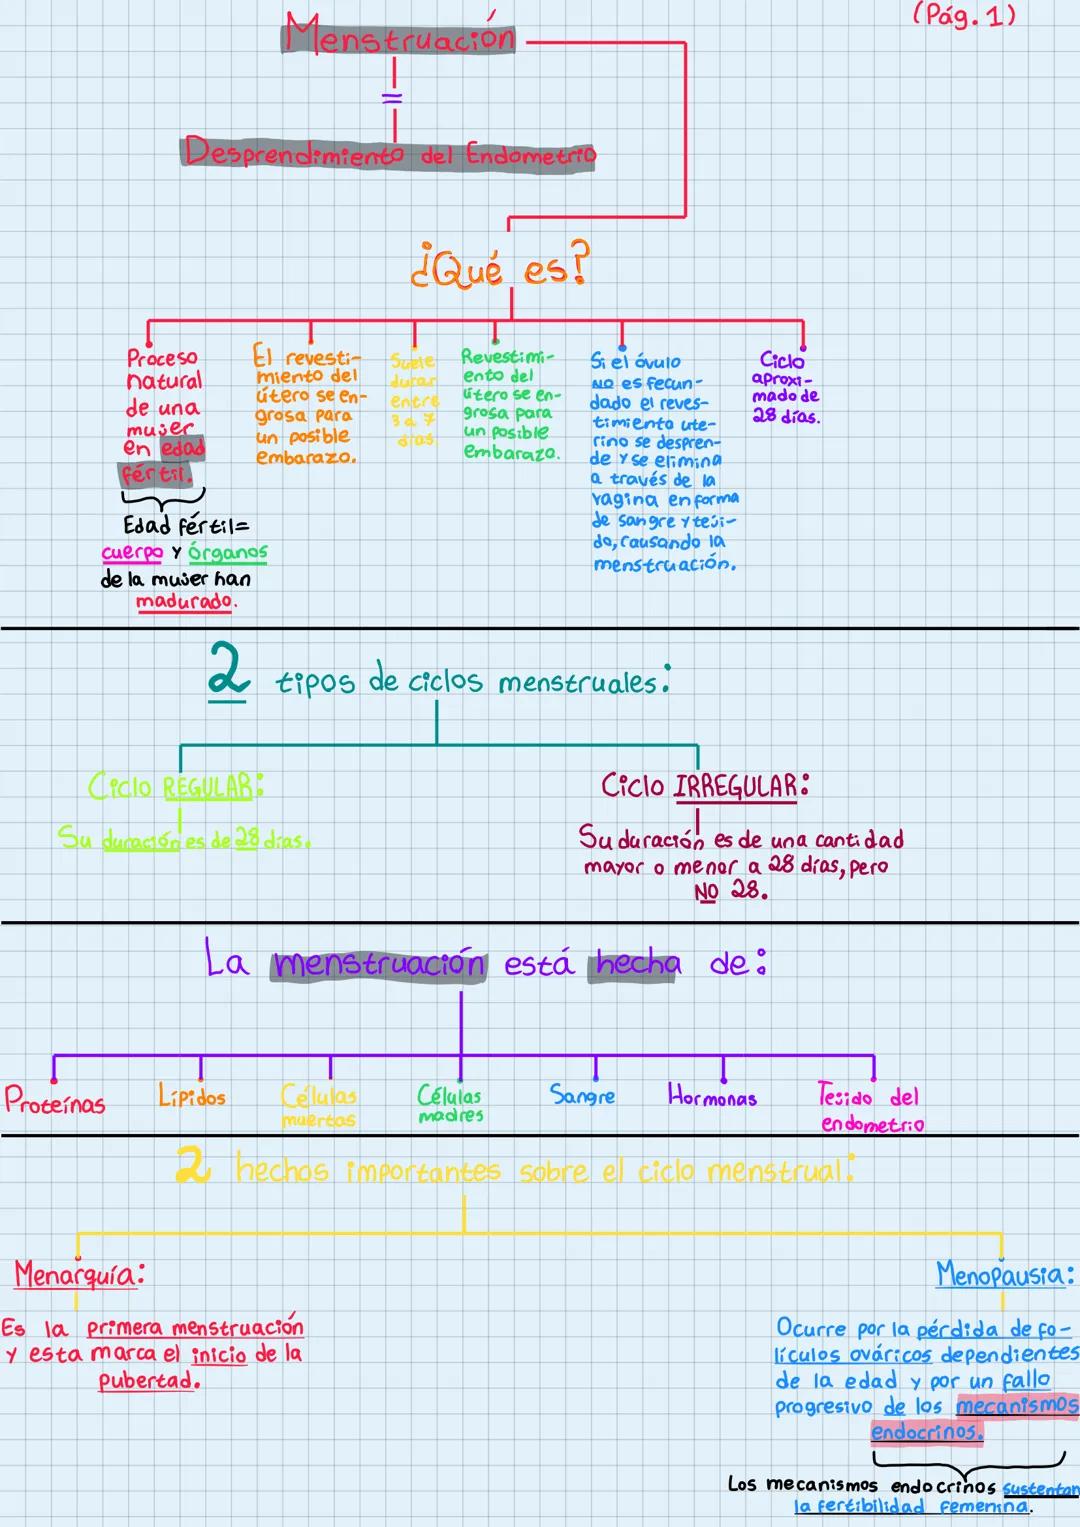 (Pág. 1)
Menstruación
=
Desprendimiento del Endometrio
¿Qué es?
Proceso
natural
de una
mujer
en edad
fértil.
Edad fértil=
cuerpo y órganos
de la mujer han
madurado.
El revesti-
miento del
útero se en-
grosa para
un posible
embarazo.
Suele
durar
entre
3 a 7
días.
Revestimi-
ento del
útero se en-
grosa para
un posible
embarazo.
Si el óvulo
NO es fecun-
dado el reves-
timiento ute-
rino se despren-
de y se elimina
a través de la
vagina en forma
de sangre y teji-
do, causando la
menstruación.
Ciclo
aproxi-
mado de
28 días.
2 tipos de ciclos menstruales:
Ciclo REGULAR:
Su duración es de 28 días.
Ciclo IRREGULAR:
Su duración es de una cantidad
mayor o menor a 28 días, pero
NO 28.
La menstruación está hecha de:
Proteínas
Lípidos
Células
muertas
Células
madres
Sangre
Hormonas
Tejido del
endometrio
2 hechos importantes sobre el ciclo menstrual:
Menarquía:
Es la primera menstruación
y esta marca el inicio de la
pubertad.
Menopausia:
Ocurre por la pérdida de fo-
lículos ováricos dependientes
de la edad y por un fallo
progresivo de los mecanismos
endocrinos.
Los mecanismos endocrinos sustentan
la fertibilidad femenina.